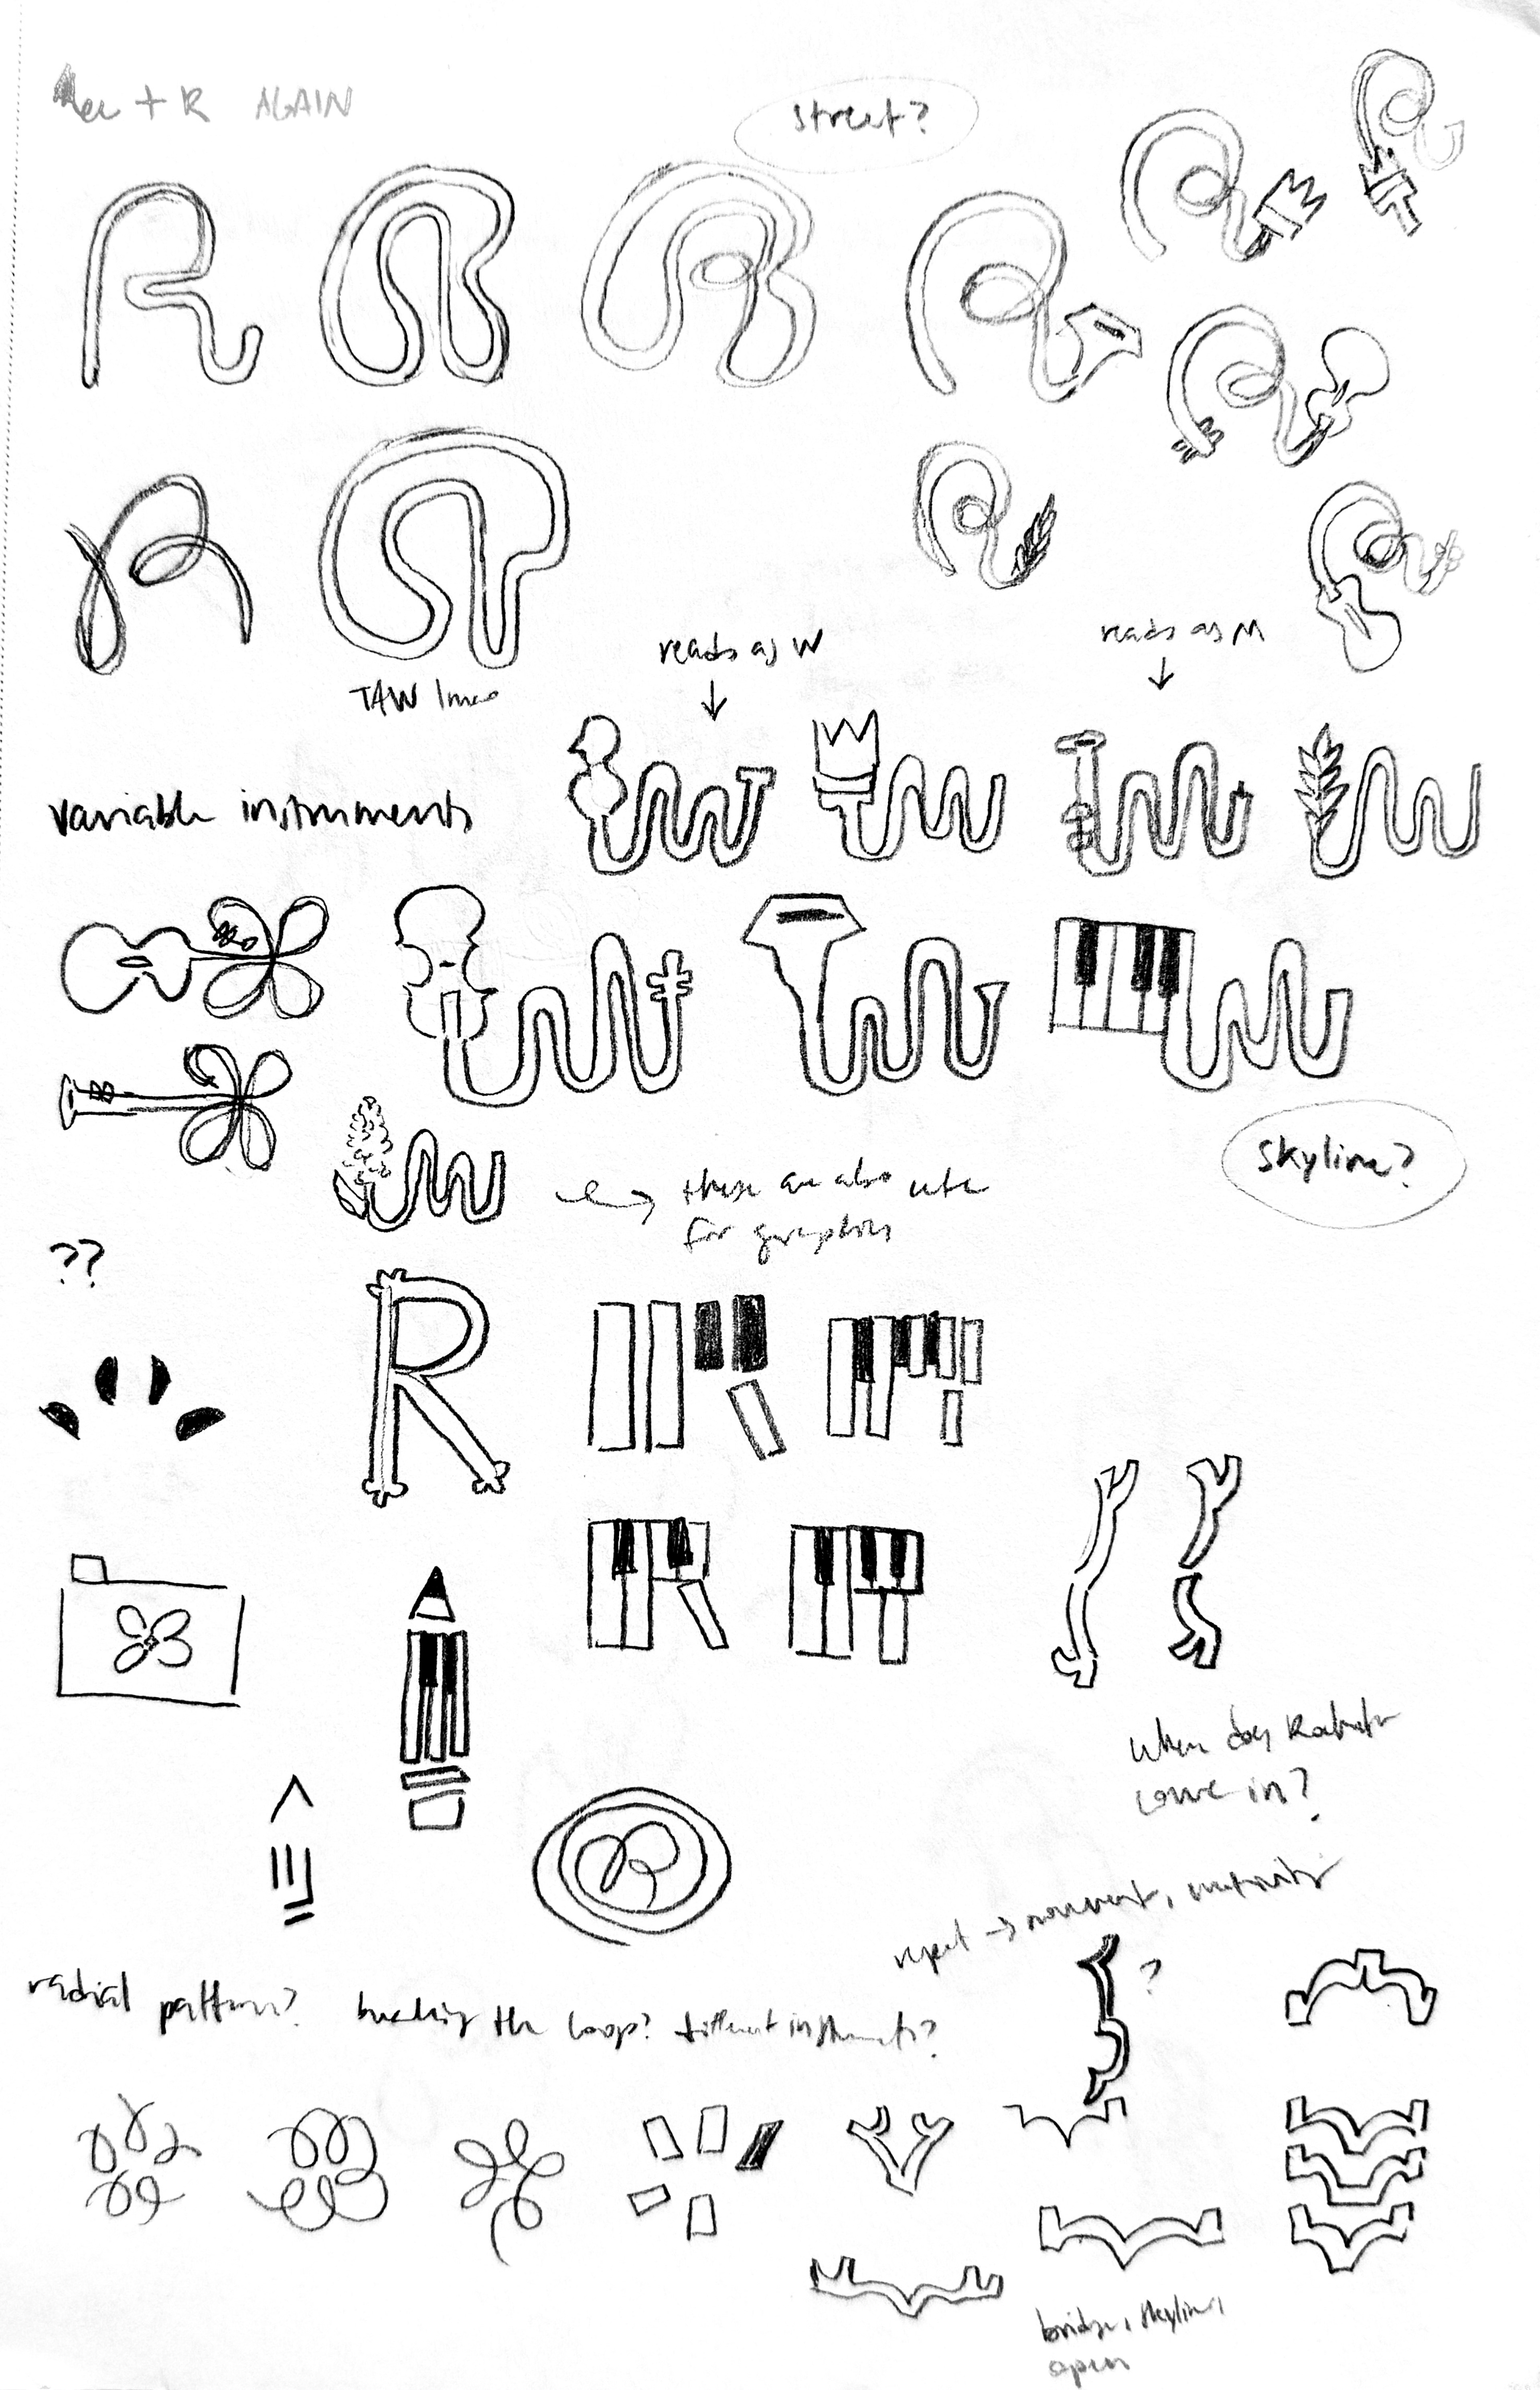 + R AGAIN
street?
TAW
reads as W
reads as M
variable instruments
skyline?
these are also cute
for graphics
??
R
when does Rochester
come in?
repeat → movement,
?
radial pattern? breaking the loop? different instruments?
bridge, skyline,
open